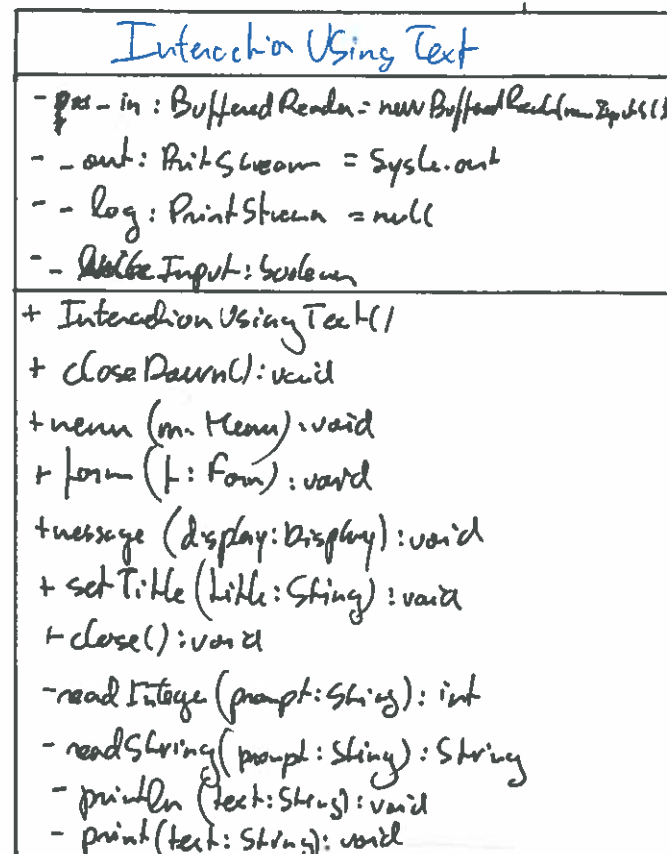 Interaction Using Text
- _in : BufferedReader = new BufferedReader(new InputS(
- _out : PrintStream = System.out
- _log : PrintStream = null
- _ Input : boolean
+ InteractionUsingText()
+ closeDown() : void
+ menu (m : Menu) : void
+ form (f : Form) : void
+ message (display : Display) : void
+ setTitle (title : String) : void
+ close() : void
- readInteger (prompt : String) : int
- readString (prompt : String) : String
- println (text : String) : void
- print (text : String) : void